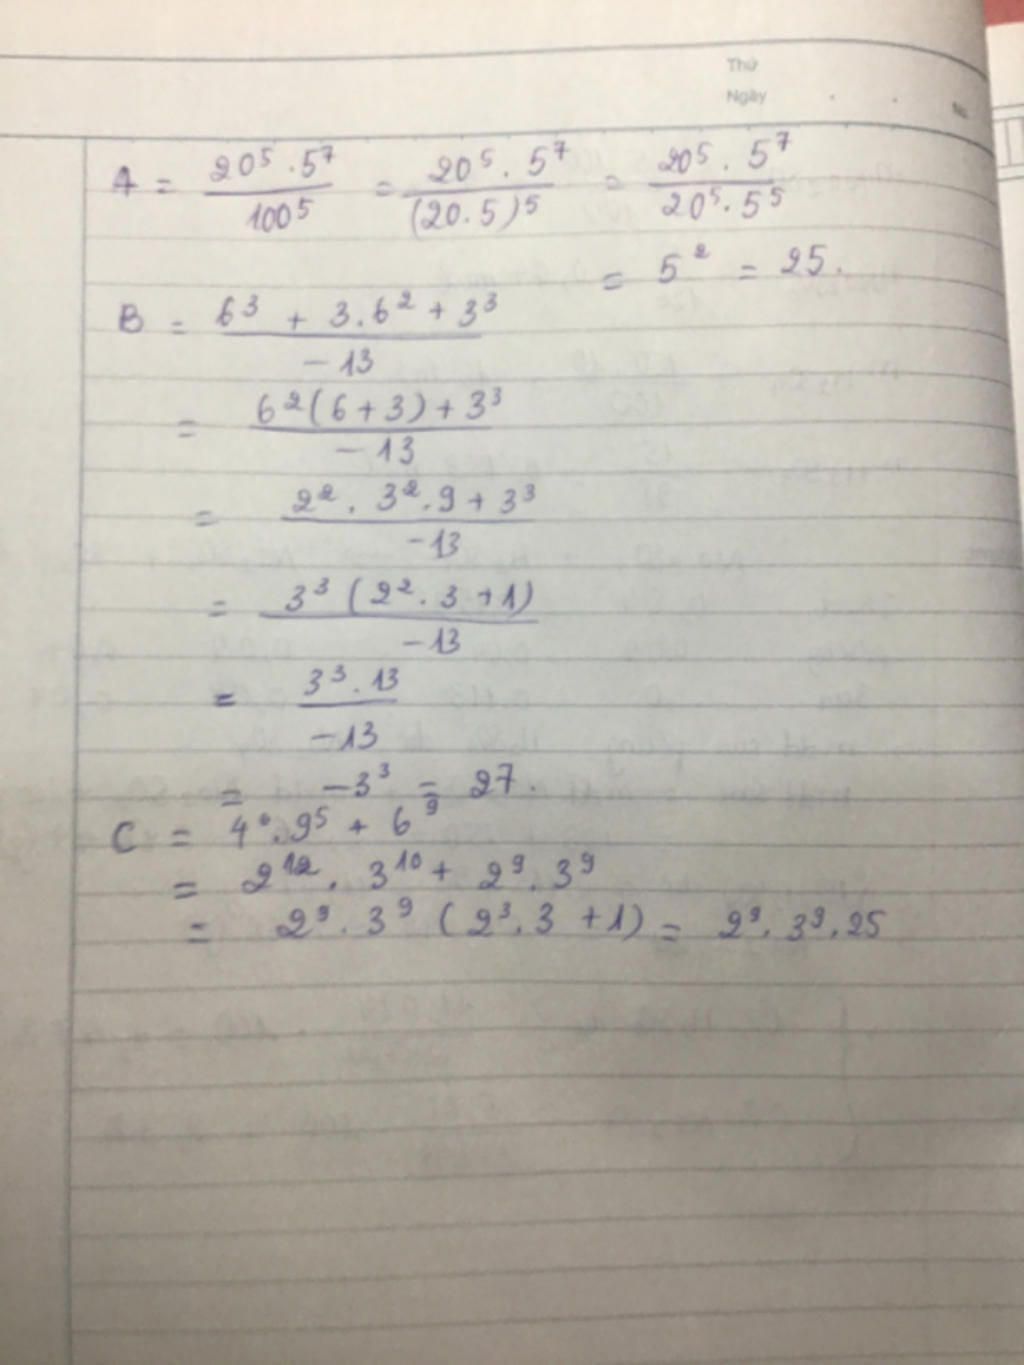 Thứ
Ngày
No
A = 20⁵ . 5⁷ / 100⁵ = 20⁵ . 5⁷ / (20 . 5)⁵ = 20⁵ . 5⁷ / 20⁵ . 5⁵
= 5² = 25.
B = 6³ + 3.6² + 3³ / −13
= 6² (6 + 3) + 3³ / −13
= 2² . 3² . 9 + 3³ / −13
= 3³ (2² . 3 + 1) / −13
= 3³ . 13 / −13
= −3³ = 27.
C = 4⁶ . 9⁵ + 6⁹
= 2¹² . 3¹⁰ + 2⁹ . 3⁹
= 2⁹ . 3⁹ (2³ . 3 + 1) = 2⁹ . 3⁹ . 25